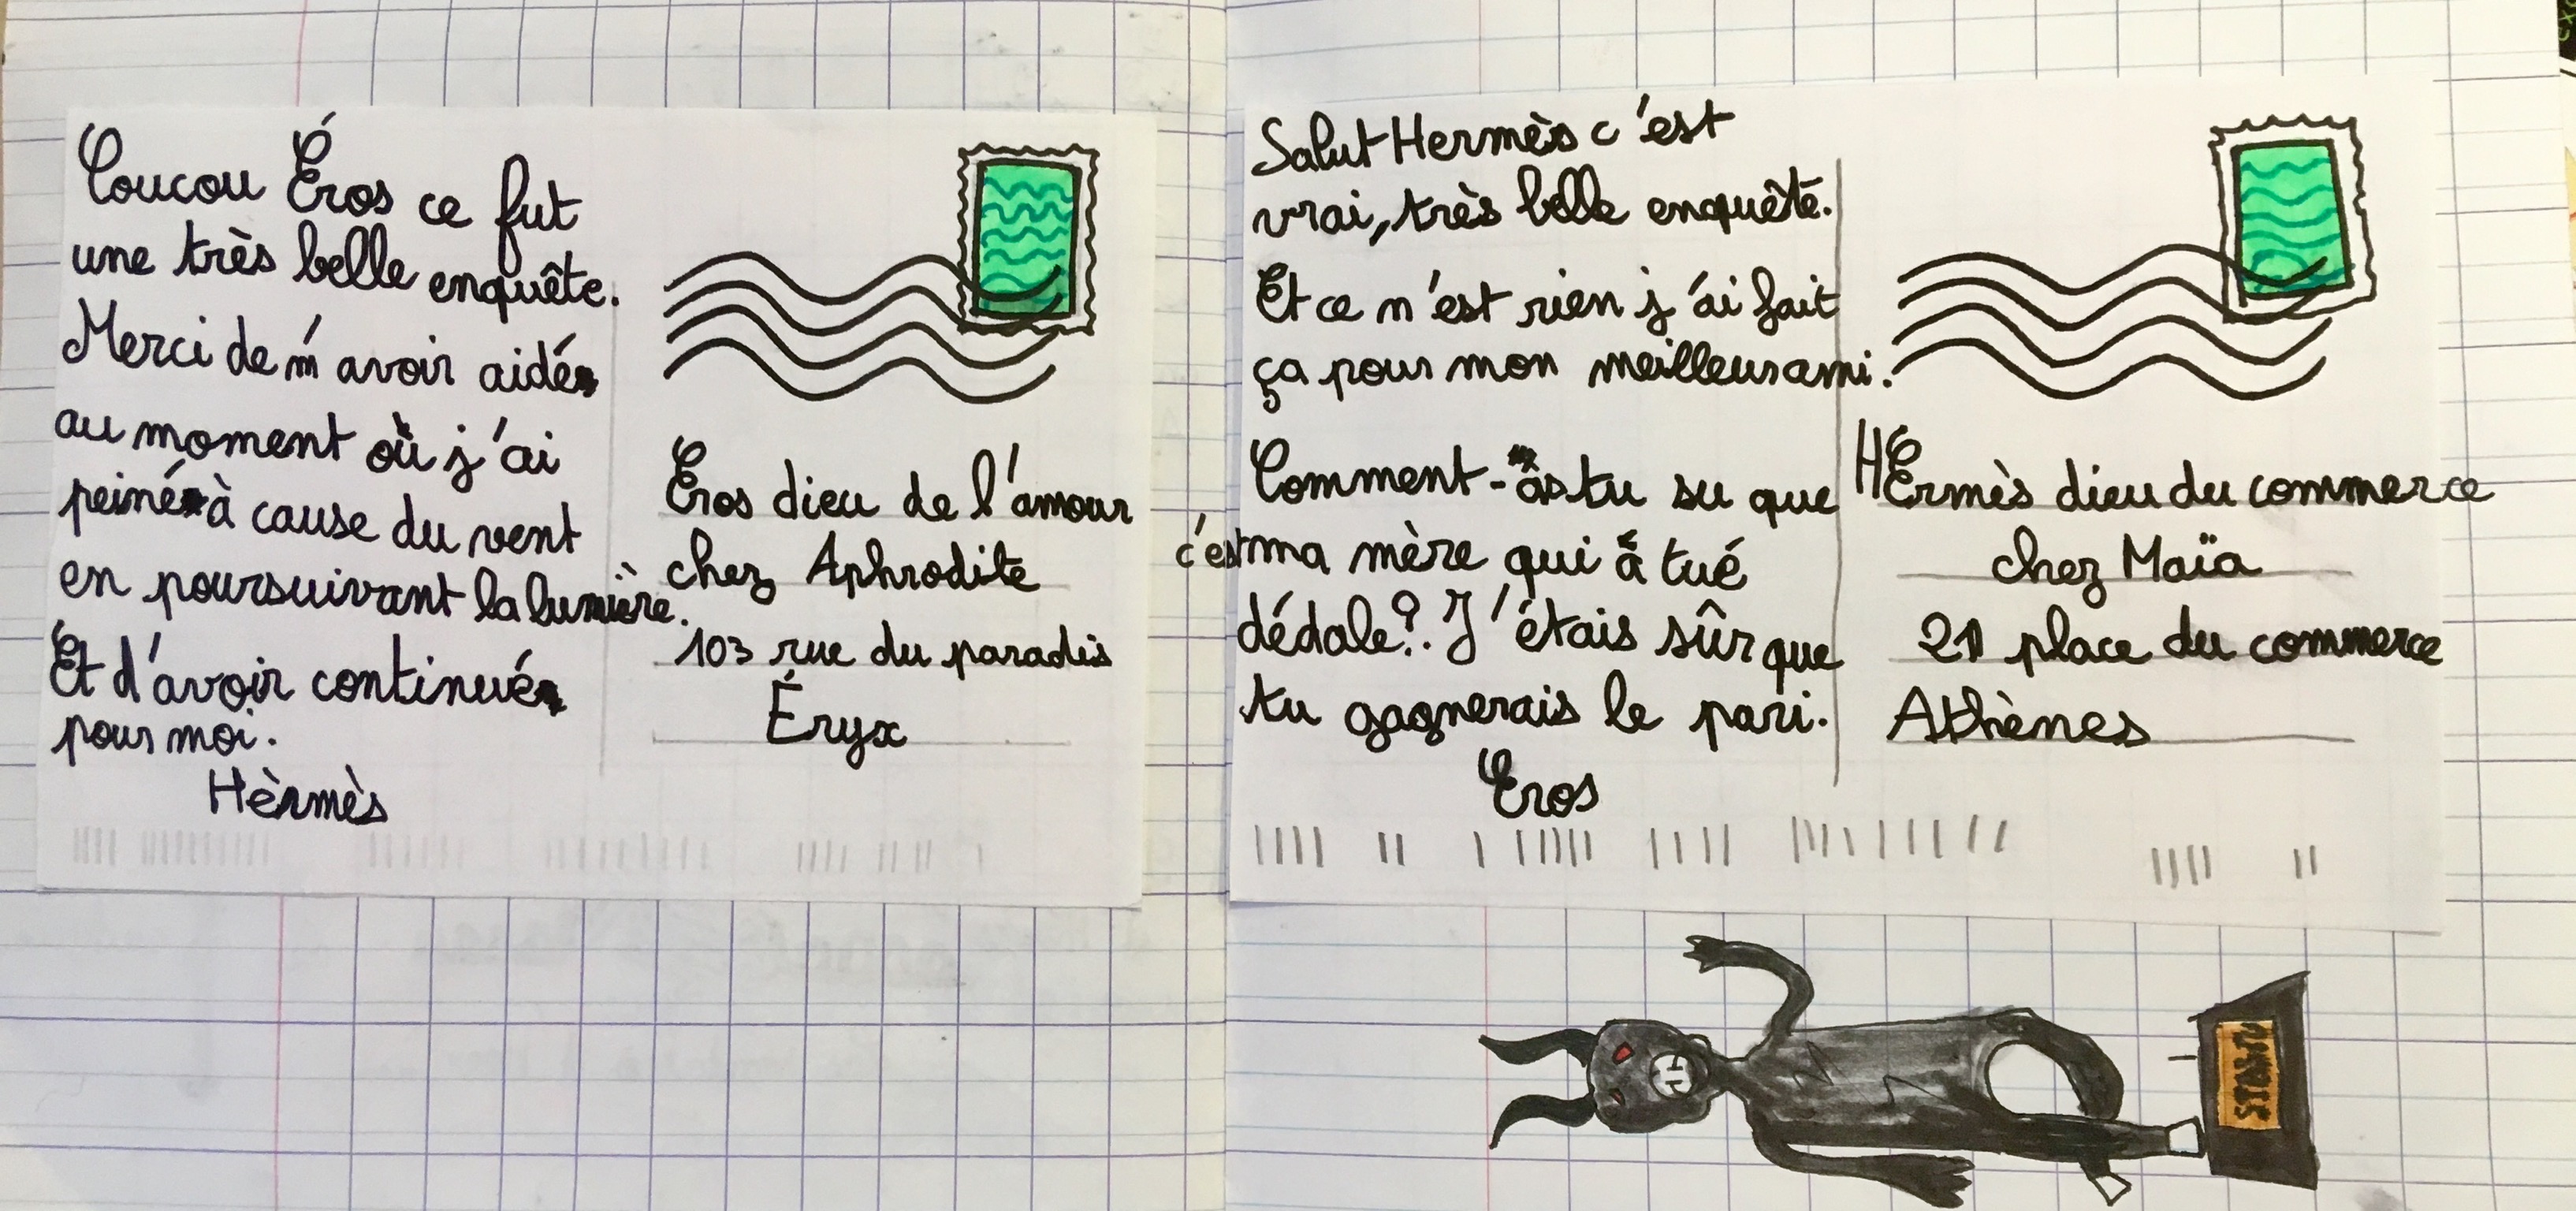 Coucou Éros ce fut
une très belle enquête.
Merci de m'avoir aidé
au moment où j'ai
peiné à cause du vent
en poursuivant la lumière.
Et d'avoir continué
pour moi.
Hèrmès
Eros dieu de l'amour
chez Aphrodite
103 rue du paradis
Éryx
Salut Hermès c'est
vrai, très belle enquête.
Et ce n'est rien j'ai fait
ça pour mon meilleur ami.
Comment-as tu su que
c'est ma mère qui a tué
dédale?. J'étais sûr que
tu gagnerais le pari.
Eros
HErmès dieu du commerce
chez Maïa
21 place du commerce
Athènes